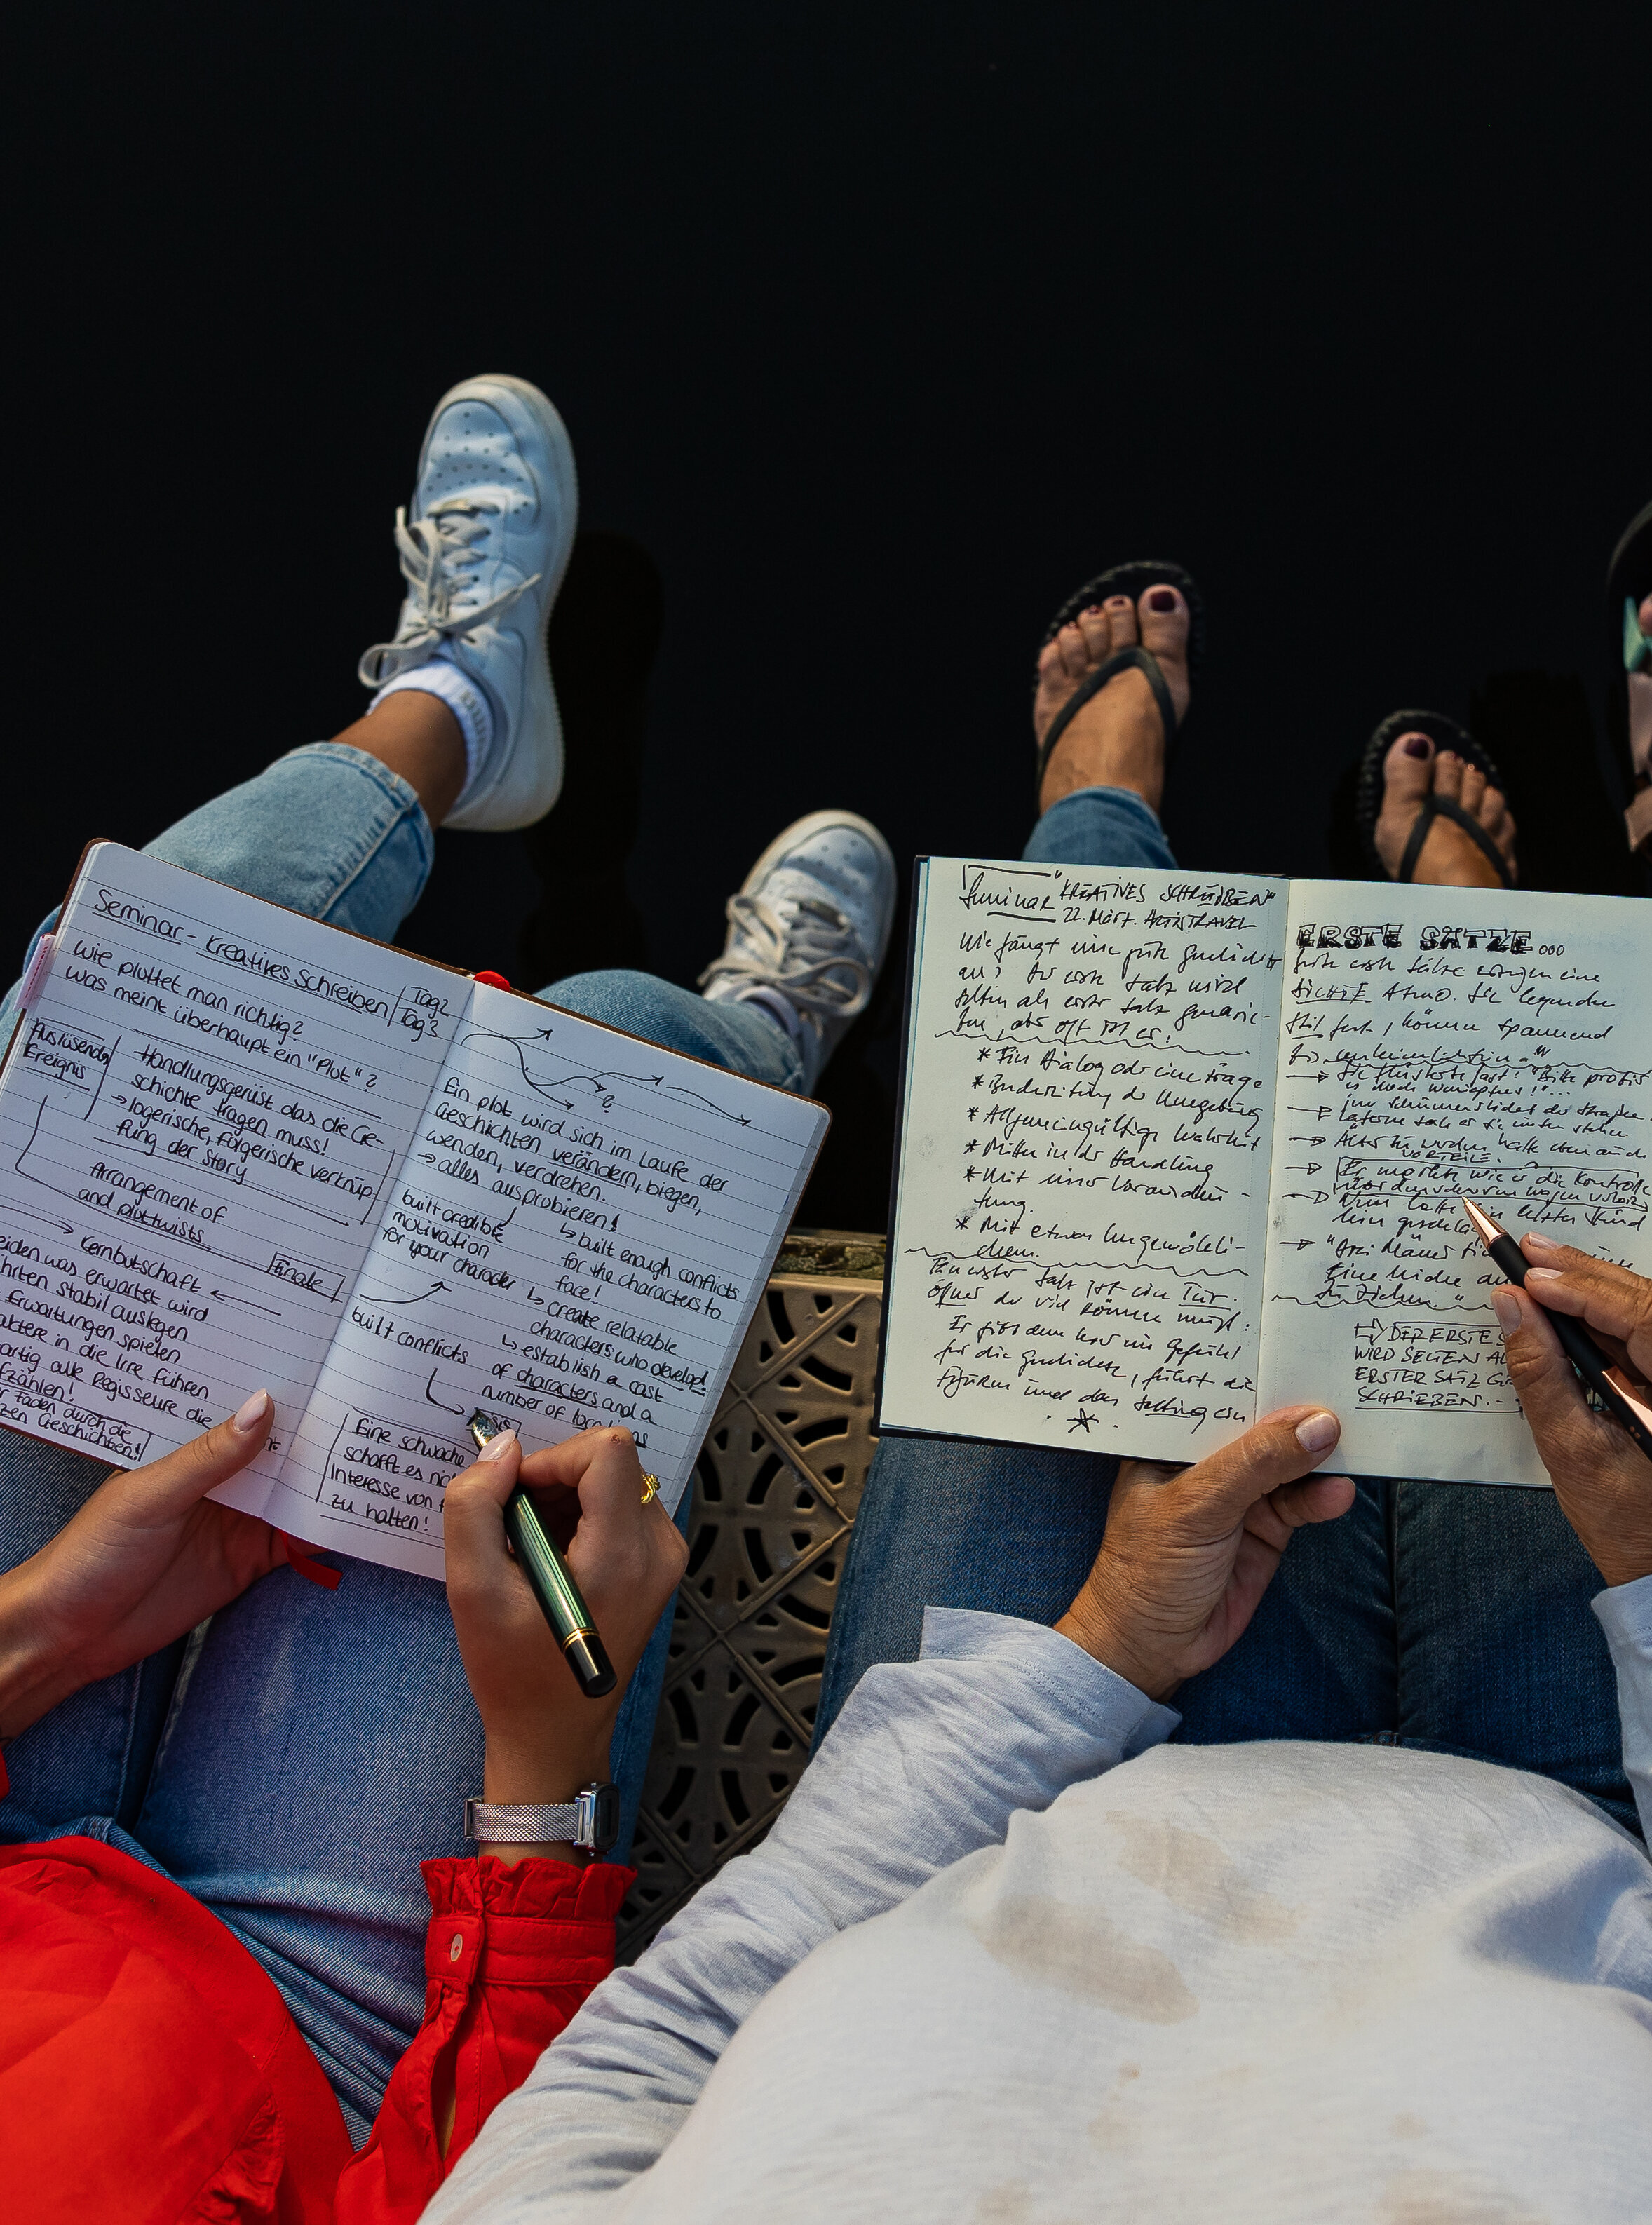 Seminar - Kreatives Schreiben / Tag 2
Tag 3
wie plottet man richtig?
was meint überhaupt ein "Plot"?
Auslösendes
Ereignis
Handlungsgerüst das die Ge-
schichte tragen muss!
→ logerische, folgerische Verknüp-
fung der Story
Arrangement of
and plottwists
Kernbotschaft
Finale
eiden was erwartet wird
hrten stabil auslegen
Erwartungen spielen
aktere in die Irre führen
artig alle Regisseure die
zählen!
Faden durch die
zen Geschichten!
Ein Plot wird sich im Laufe der
Geschichten verändern, biegen,
wenden, verdrehen.
→ alles ausprobieren!
built credible
motivation
for your character
built conflicts
↳ built enough conflicts
for the characters to
face!
↳ create relatable
characters who develop!
↳ establish a cast
of characters and a
number of
Eine schwache
schafft es
Interesse von
zu halten!
Seminar "KREATIVES SCHREIBEN"
22. März. ARTISTRAVEL
Wie fängt eine gute Geschichte
an? Der erste Satz wird
selten als erster Satz geschrie-
ben, aber oft ist er!
* Ein Dialog oder eine Frage
* Beschreibung der Umgebung
* Allgemeingültige Wahrheit
* Mitten in der Handlung
* Mit einer Vorausdeu-
tung.
* Mit etwas Ungewöhnli-
chem.
Ein erster Satz ist ein Tür.
Öffner der viel können muss:
Er gibt dem Leser ein Gefühl
für die Geschichte, führt die
Figuren und das Setting ein
ERSTE SÄTZE...
Gute erste Sätze erzeugen eine
DICHTE Atmo. Sie legen den
Stil fest, können spannend
→ Sie flüsterte fast: "Bitte
→ Im Schimmerlicht der Straßen-
laterne sah er sie
→ Alter zu werden hatte eben auch
VORTEILE.
→ Er merkte wie er die Kontrolle
über den schweren Wagen
letzten
→ "Drei Männer
Eine Leiche
DER ERSTE S
WIRD SELTEN AL
ERSTER SATZ GE
SCHRIEBEN.